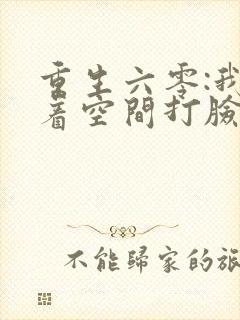 重生六零:我
着空間打臉
不能歸家的旅